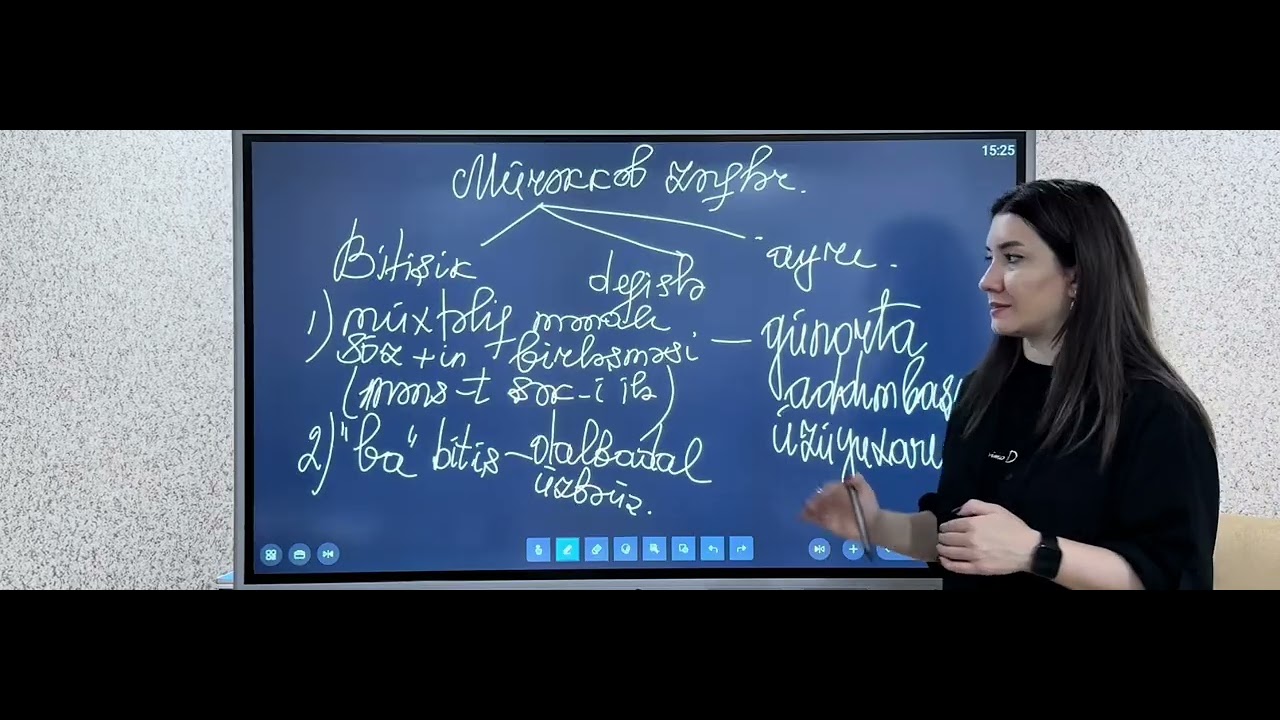 15:25
Mürəkkəb zərflər.
Bitişik
defislə
ayrı.
1) müxtəlif mənalı
söz+in birləşməsi — günorta
(məns-t şək-i ilə) addımbaşı
2) "ba" bitiş – dalbadal üzüyuxarı
üzbəüz.